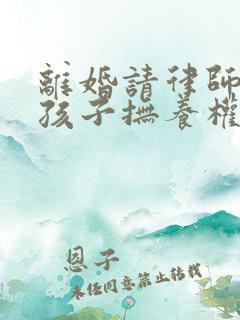 離婚請律師
孩子撫養權
恩子
未經同意禁止轉載